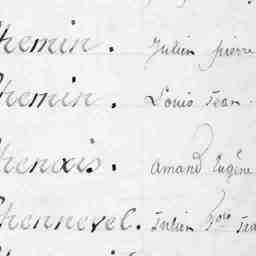 Chemin. Julien Pierre
Chemin. Louis Jean
Chenais. Amand Eugène
Chennevel. Julien